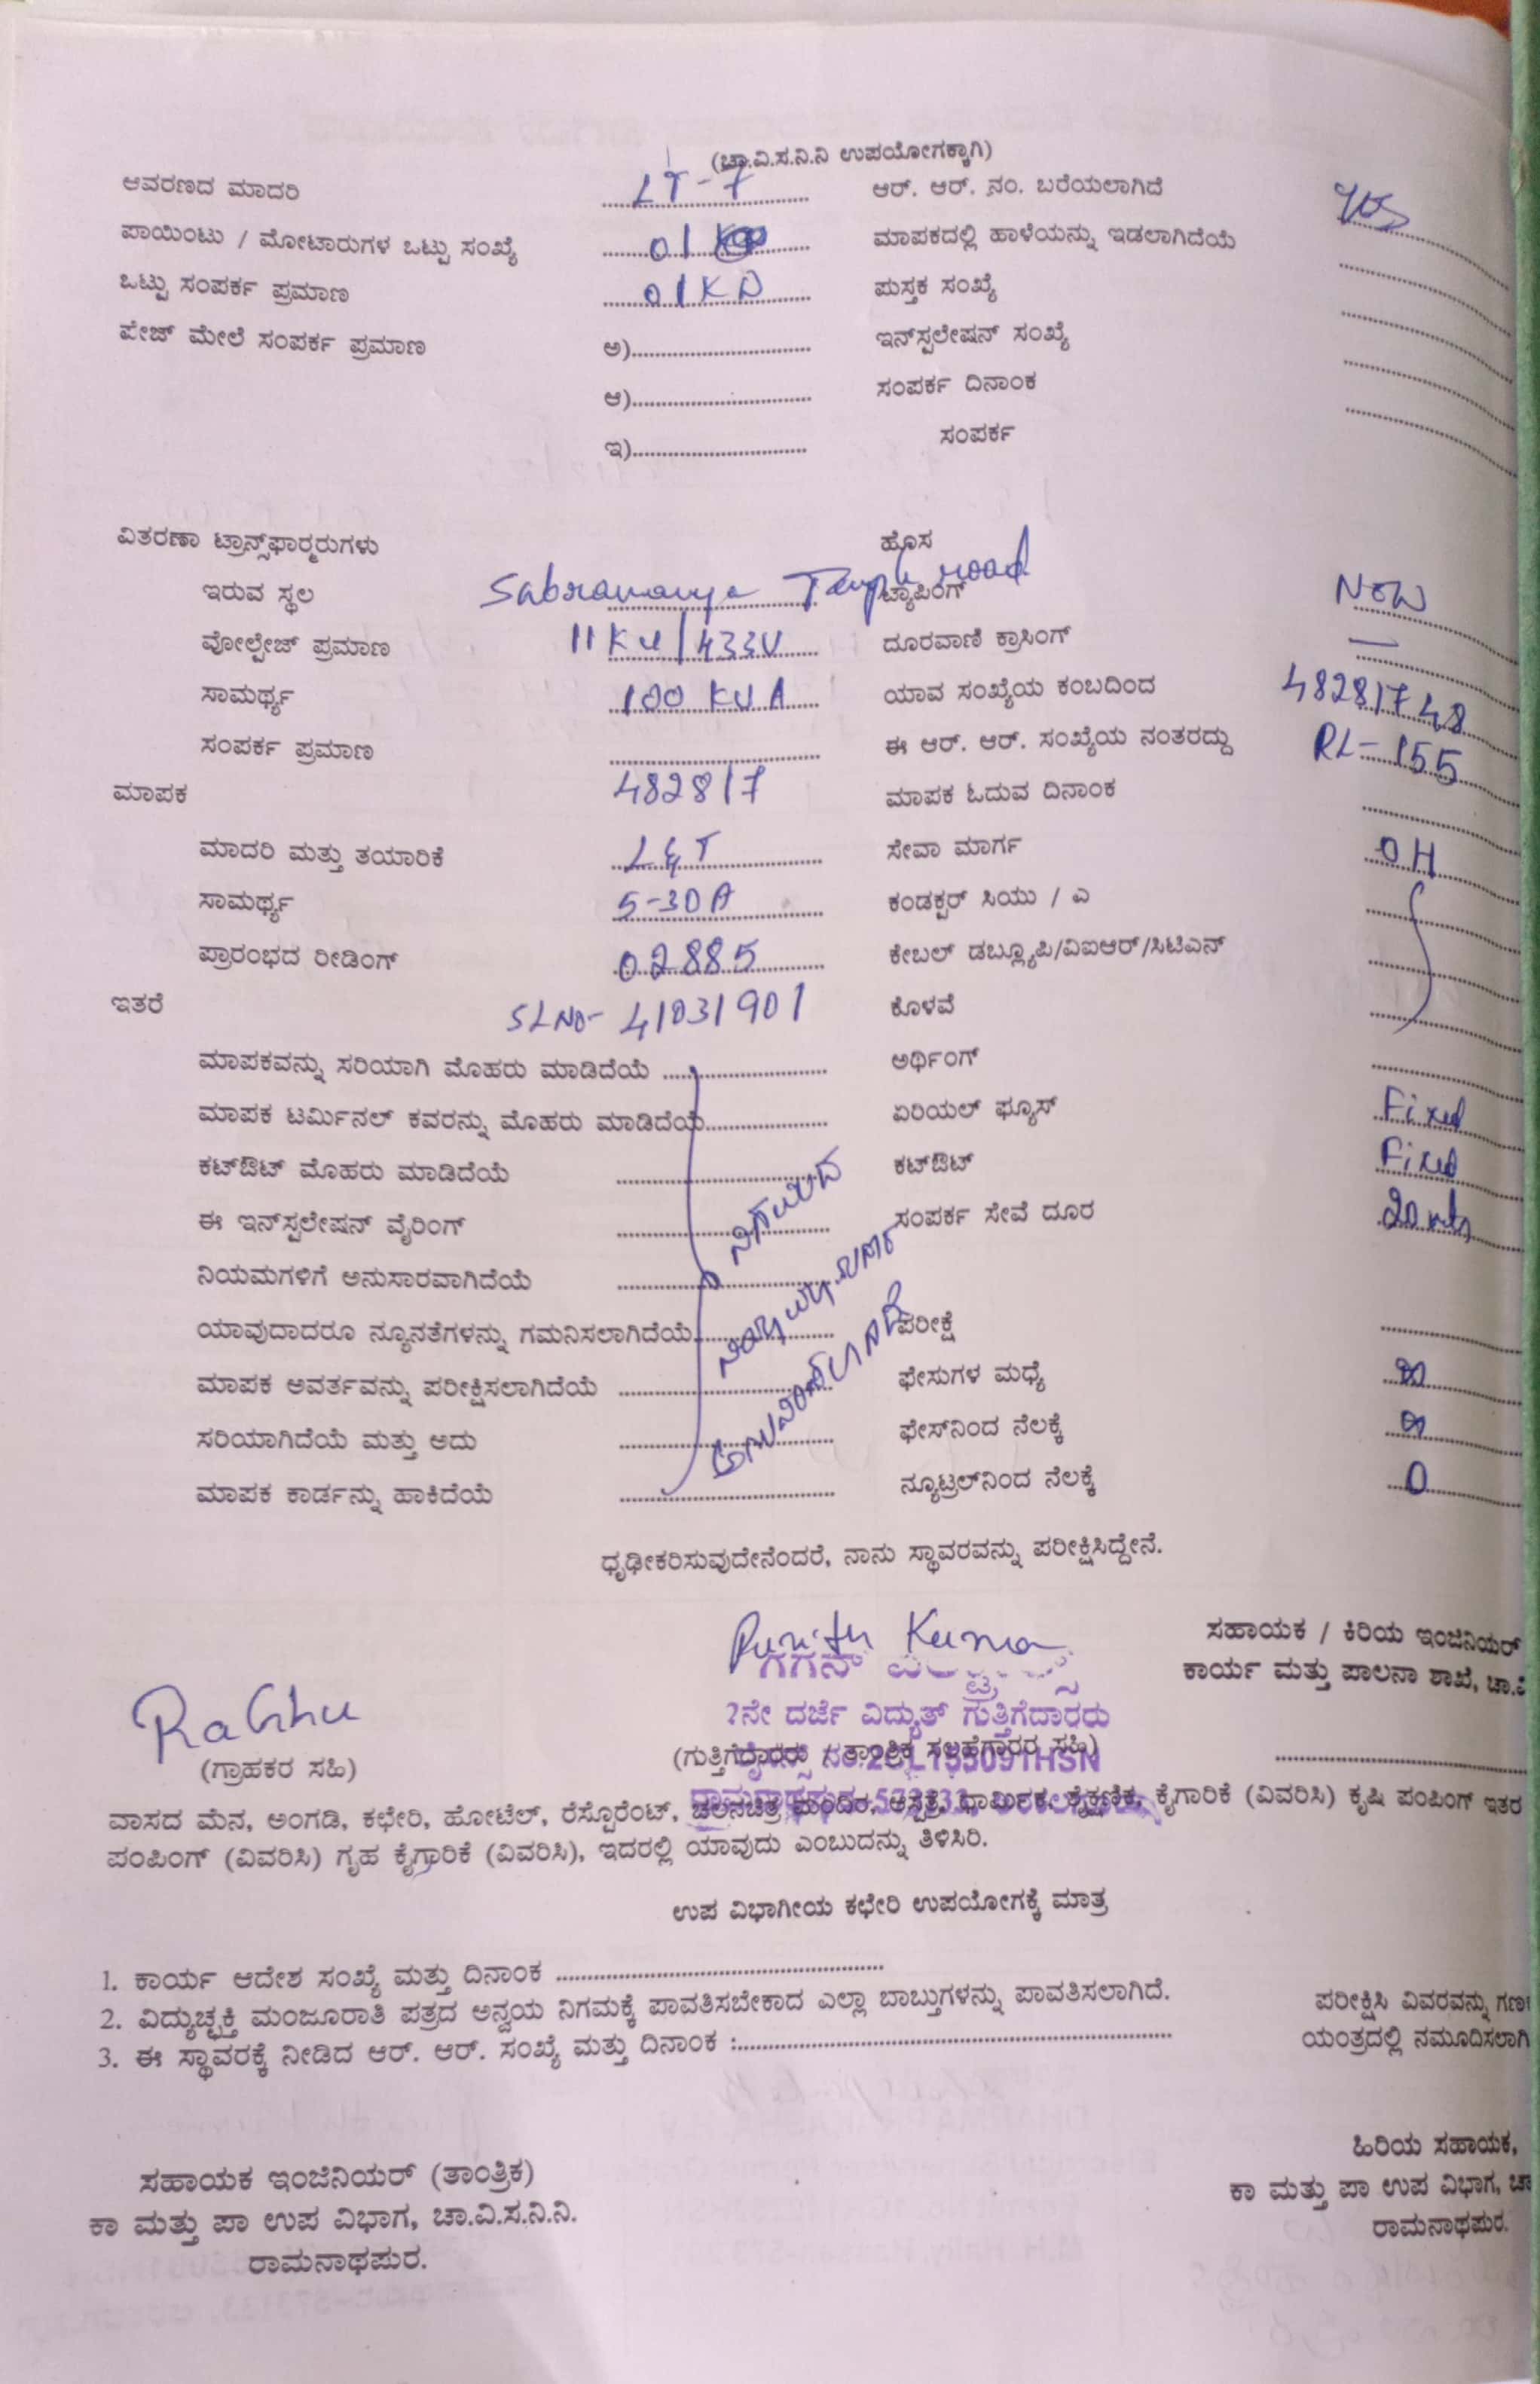 (ಚಾ.ವಿ.ಸ.ನಿ.ನಿ ಉಪಯೋಗಕ್ಕಾಗಿ)
ಆವರಣದ ಮಾದರಿ LT-7 ಆರ್. ಆರ್. ನಂ. ಬರೆಯಲಾಗಿದೆ yes
ಪಾಯಿಂಟು / ಮೋಟಾರುಗಳ ಒಟ್ಟು ಸಂಖ್ಯೆ 01 ಮಾಪಕದಲ್ಲಿ ಹಾಳೆಯನ್ನು ಇಡಲಾಗಿದೆಯೆ
ಒಟ್ಟು ಸಂಪರ್ಕ ಪ್ರಮಾಣ 01KD ಪುಸ್ತಕ ಸಂಖ್ಯೆ
ಪೇಜ್ ಮೇಲೆ ಸಂಪರ್ಕ ಪ್ರಮಾಣ ಅ) ಇನ್‌ಸ್ಟಲೇಷನ್ ಸಂಖ್ಯೆ
ಆ) ಸಂಪರ್ಕ ದಿನಾಂಕ
ಇ) ಸಂಪರ್ಕ
ವಿತರಣಾ ಟ್ರಾನ್ಸ್‌ಫಾರ್ಮರುಗಳು ಹೊಸ
ಇರುವ ಸ್ಥಲ Sabramanya Temple road ಟ್ಯಾಪಿಂಗ್ New
ವೋಲ್ಟೇಜ್ ಪ್ರಮಾಣ 11KV/433V ದೂರವಾಣಿ ಕ್ರಾಸಿಂಗ್ —
ಸಾಮರ್ಥ್ಯ 100 KVA ಯಾವ ಸಂಖ್ಯೆಯ ಕಂಬದಿಂದ 48281748
ಸಂಪರ್ಕ ಪ್ರಮಾಣ ಈ ಆರ್. ಆರ್. ಸಂಖ್ಯೆಯ ನಂತರದ್ದು RL-155
ಮಾಪಕ 482817 ಮಾಪಕ ಓದುವ ದಿನಾಂಕ
ಮಾದರಿ ಮತ್ತು ತಯಾರಿಕೆ L&T ಸೇವಾ ಮಾರ್ಗ OH
ಸಾಮರ್ಥ್ಯ 5-30A ಕಂಡಕ್ಟರ್ ಸಿಯು / ಎ
ಪ್ರಾರಂಭದ ರೀಡಿಂಗ್ 02885 ಕೇಬಲ್ ಡಬ್ಲ್ಯೂಪಿ/ವಿಐಆರ್/ಸಿಟಿಎನ್
ಇತರೆ SLNO- 41031901 ಕೊಳವೆ
ಮಾಪಕವನ್ನು ಸರಿಯಾಗಿ ಮೊಹರು ಮಾಡಿದೆಯೆ ಅರ್ಥಿಂಗ್
ಮಾಪಕ ಟರ್ಮಿನಲ್ ಕವರನ್ನು ಮೊಹರು ಮಾಡಿದೆಯೆ ಏರಿಯಲ್ ಫ್ಯೂಸ್ Fixed
ಕಟ್‌ಔಟ್ ಮೊಹರು ಮಾಡಿದೆಯೆ ಕಟ್‌ಔಟ್ Fixed
ಈ ಇನ್‌ಸ್ಟಲೇಷನ್ ವೈರಿಂಗ್ ನಿಗಮದ ಸಂಪರ್ಕ ಸೇವೆ ದೂರ 20 mts
ನಿಯಮಗಳಿಗೆ ಅನುಸಾರವಾಗಿದೆಯೆ
ಯಾವುದಾದರೂ ನ್ಯೂನತೆಗಳನ್ನು ಗಮನಿಸಲಾಗಿದೆಯೆ ಪರೀಕ್ಷೆ
ಮಾಪಕ ಅವರ್ತವನ್ನು ಪರೀಕ್ಷಿಸಲಾಗಿದೆಯೆ ಫೇಸುಗಳ ಮಧ್ಯೆ
ಸರಿಯಾಗಿದೆಯೆ ಮತ್ತು ಅದು ಫೇಸ್‌ನಿಂದ ನೆಲಕ್ಕೆ
ಮಾಪಕ ಕಾರ್ಡನ್ನು ಹಾಕಿದೆಯೆ ನ್ಯೂಟ್ರಲ್‌ನಿಂದ ನೆಲಕ್ಕೆ 0
ಧೃಢೀಕರಿಸುವುದೇನೆಂದರೆ, ನಾನು ಸ್ಥಾವರವನ್ನು ಪರೀಕ್ಷಿಸಿದ್ದೇನೆ.
Punith Kumar ಸಹಾಯಕ / ಕಿರಿಯ ಇಂಜಿನಿಯರ್
ಗಗನ್ ಕಾರ್ಯ ಮತ್ತು ಪಾಲನಾ ಶಾಖೆ, ಚಾ.ವಿ
Raghu
2ನೇ ದರ್ಜೆ ವಿದ್ಯುತ್ ಗುತ್ತಿಗೆದಾರರು
(ಗ್ರಾಹಕರ ಸಹಿ) (ಗುತ್ತಿಗೆದಾರರು / ತಾಂತ್ರಿಕ ಸಲಹೆಗಾರರ ಸಹಿ)
ವಾಸದ ಮೆನ, ಅಂಗಡಿ, ಕಛೇರಿ, ಹೋಟೆಲ್, ರೆಸ್ಟೊರೆಂಟ್, ಚಲನಚಿತ್ರ ಮಂದಿರ, ಆಸ್ಪತ್ರೆ, ಧಾರ್ಮಿಕ, ಶೈಕ್ಷಣಿಕ, ಕೈಗಾರಿಕೆ (ವಿವರಿಸಿ) ಕೃಷಿ ಪಂಪಿಂಗ್ ಇತರ
ಪಂಪಿಂಗ್ (ವಿವರಿಸಿ) ಗೃಹ ಕೈಗ್ರಾರಿಕೆ (ವಿವರಿಸಿ), ಇದರಲ್ಲಿ ಯಾವುದು ಎಂಬುದನ್ನು ತಿಳಿಸಿರಿ.
ಉಪ ವಿಭಾಗೀಯ ಕಛೇರಿ ಉಪಯೋಗಕ್ಕೆ ಮಾತ್ರ
1. ಕಾರ್ಯ ಆದೇಶ ಸಂಖ್ಯೆ ಮತ್ತು ದಿನಾಂಕ
2. ವಿದ್ಯುಚ್ಛಕ್ತಿ ಮಂಜೂರಾತಿ ಪತ್ರದ ಅನ್ವಯ ನಿಗಮಕ್ಕೆ ಪಾವತಿಸಬೇಕಾದ ಎಲ್ಲಾ ಬಾಬ್ತುಗಳನ್ನು ಪಾವತಿಸಲಾಗಿದೆ. ಪರೀಕ್ಷಿಸಿ ವಿವರವನ್ನು ಗಣಕ
3. ಈ ಸ್ಥಾವರಕ್ಕೆ ನೀಡಿದ ಆರ್. ಆರ್. ಸಂಖ್ಯೆ ಮತ್ತು ದಿನಾಂಕ : ಯಂತ್ರದಲ್ಲಿ ನಮೂದಿಸಲಾಗಿ
ಹಿರಿಯ ಸಹಾಯಕ,
ಸಹಾಯಕ ಇಂಜಿನಿಯರ್ (ತಾಂತ್ರಿಕ) ಕಾ ಮತ್ತು ಪಾ ಉಪ ವಿಭಾಗ, ಚಾ
ಕಾ ಮತ್ತು ಪಾ ಉಪ ವಿಭಾಗ, ಚಾ.ವಿ.ಸ.ನಿ.ನಿ. ರಾಮನಾಥಪುರ.
ರಾಮನಾಥಪುರ.